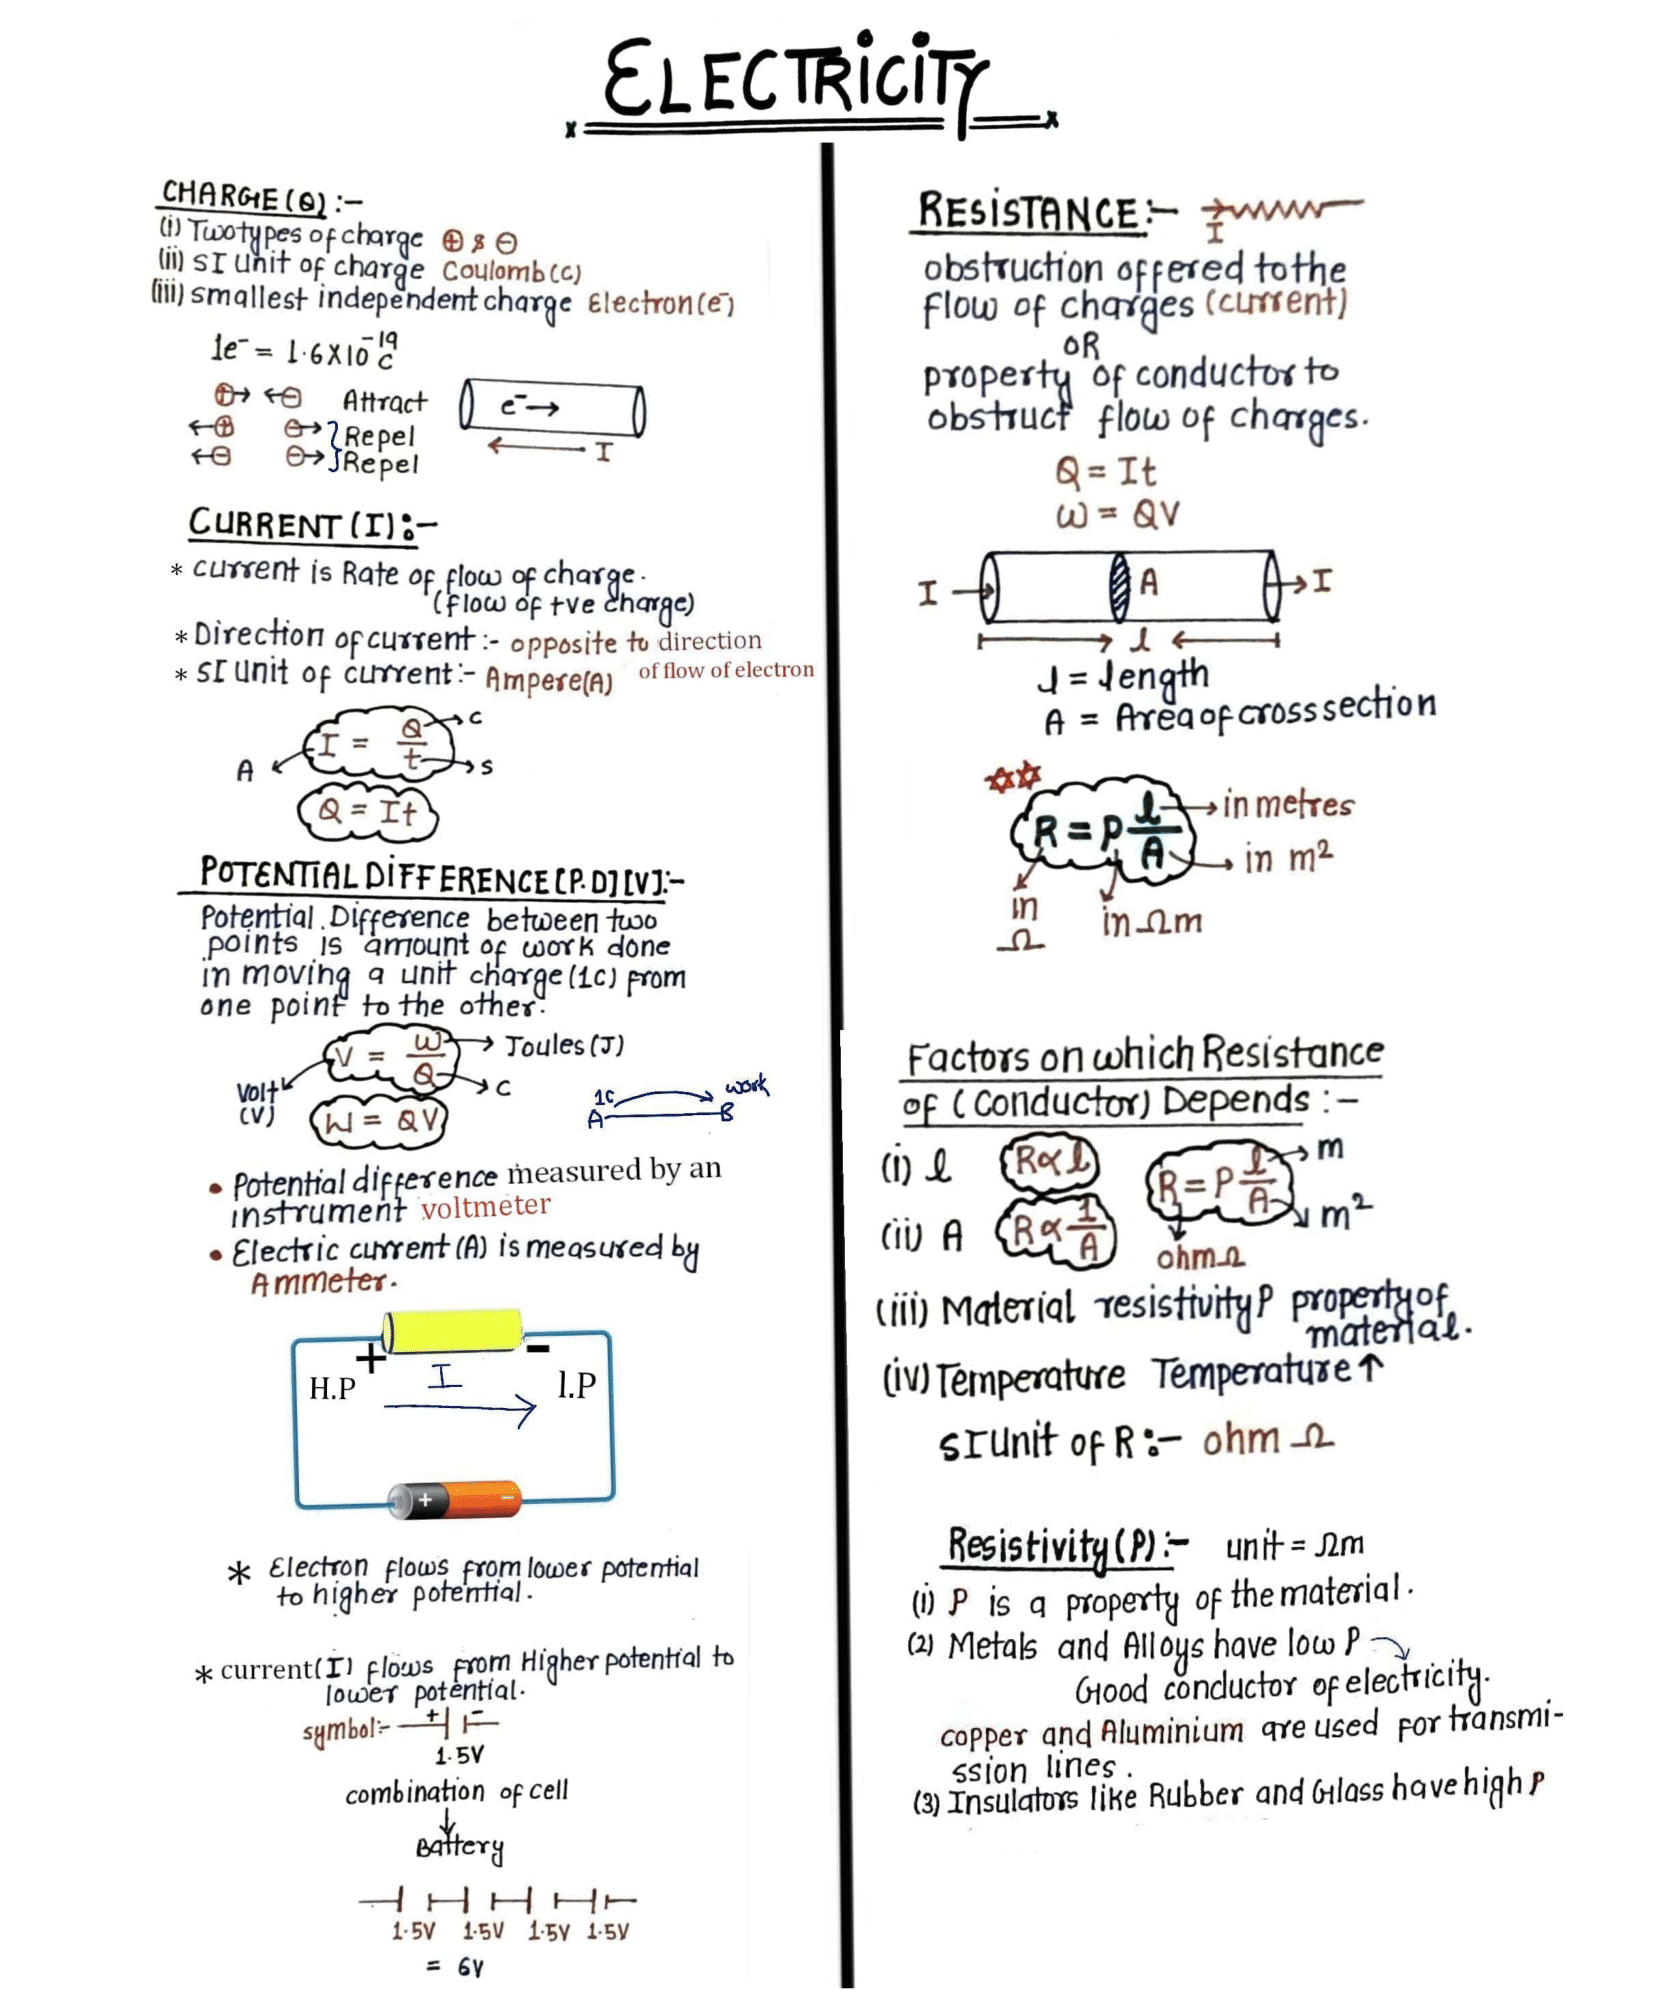 ELECTRiCiTY
CHARGE (Q) :-
(i) Two types of charge ⊕ & ⊖
(ii) SI unit of charge Coulomb (c)
(iii) smallest independent charge Electron (e⁻)
1e⁻ = 1.6X10⁻¹⁹ C
⊕→ ←⊖ Attract
←⊕ ⊖→ } Repel
←⊖ ⊖→ } Repel
e⁻→
I
CURRENT (I) :-
* current is Rate of flow of charge.
(flow of +ve charge)
* Direction of current :- opposite to direction
of flow of electron
* SI unit of current :- Ampere(A)
I = Q/t
C
A
S
Q = It
POTENTIAL DIFFERENCE [P.D] [V] :-
Potential. Difference between two
points is amount of work done
in moving a unit charge (1c) from
one point to the other.
V = W/Q
→ Joules (J)
→ C
Volt
(V)
W = QV
1C
work
A
B
• Potential difference measured by an
instrument voltmeter
• Electric current (A) is measured by
Ammeter.
+ -
H.P I l.P
+ -
* Electron flows from lower potential
to higher potential.
* current(I) flows from Higher potential to
lower potential.
symbol:- + -
1.5V
combination of cell
↓
Battery
1.5V 1.5V 1.5V 1.5V
= 6V
RESiSTANCE :-
I
obstruction offered to the
flow of charges (current)
OR
property of conductor to
obstruct flow of charges.
Q = It
W = QV
I → A → I
l
l = length
A = Area of cross section
R = ρ l/A
→ in metres
→ in m²
in
Ω
in Ωm
Factors on which Resistance
of (Conductor) Depends :-
(i) l R∝l
(ii) A R∝1/A
R = ρ l/A
m
m²
ohm Ω
(iii) Material resistivity ρ property of
material.
(iv) Temperature Temperature ↑
SI unit of R :- ohm Ω
Resistivity (ρ) :- unit = Ωm
(i) ρ is a property of the material.
(2) Metals and Alloys have low ρ
Good conductor of electricity.
copper and Aluminium are used for transmi-
ssion lines.
(3) Insulators like Rubber and Glass have high ρ